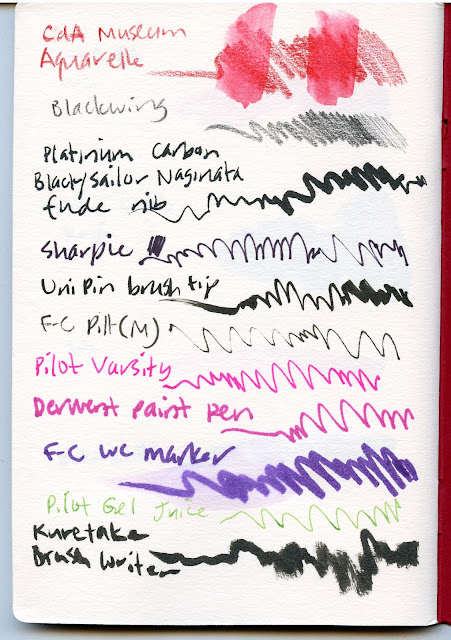 CdA Museum
Aquarelle
Blackwing
Platinum Carbon
Black/Sailor Naginata
fude nib
Sharpie
Uni Pin brush tip
F-C Pitt (M)
Pilot Varsity
Derwent paint pen
F-C WC marker
Pilot Gel Juice
Kuretake
Brush Writer